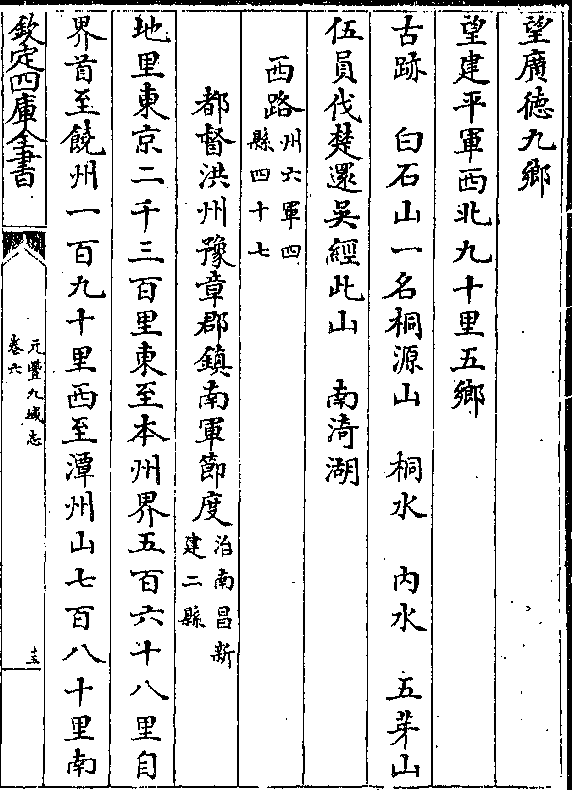 望廣德九鄉
望建平軍西北九十里五鄉
古跡　白石山一名桐源山　桐水　內水　五芽山
伍員伐楚還吳經此山　南漪湖
西路州六軍四
縣四十七
都督洪州豫章郡鎮南軍節度治南昌新
建二縣
地里東京二千三百里東至本州界五百六十八里自
界首至饒州一百九十里西至潭州山七百八十里南
欽定四庫全書
元豐九域志
卷六
十五